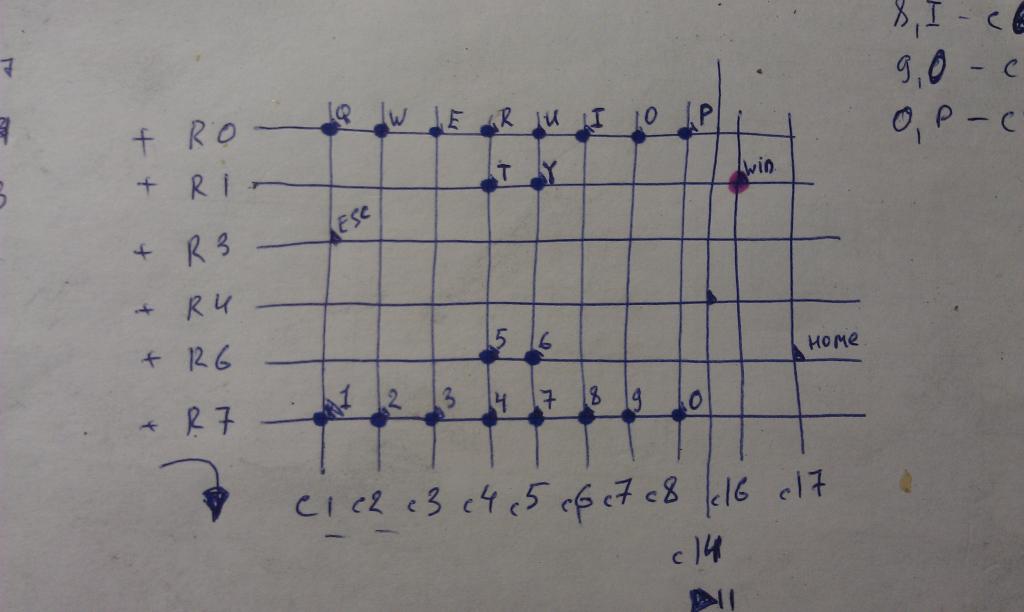 8, I - c
9, O - c
0, P - c
7
3
Q W E R U I O P
+ R0
T Y WIN
+ R1
ESC
+ R3
+ R4
5 6 HOME
+ R6
1 2 3 4 7 8 9 0
+ R7
c1 c2 c3 c4 c5 c6 c7 c8 c16 c17
c14
11